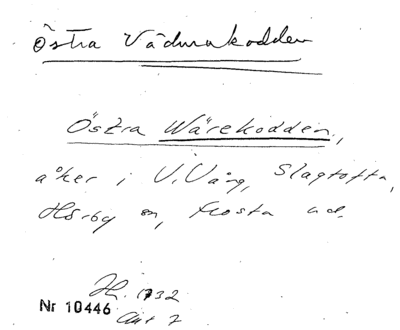 Östra Vädurakodden
Östra Wärekodden,
åker i V. Vång, Slagtofta,
Hörby sn, Frosta hd.
H. 1732
Nr 10446 Akt 7